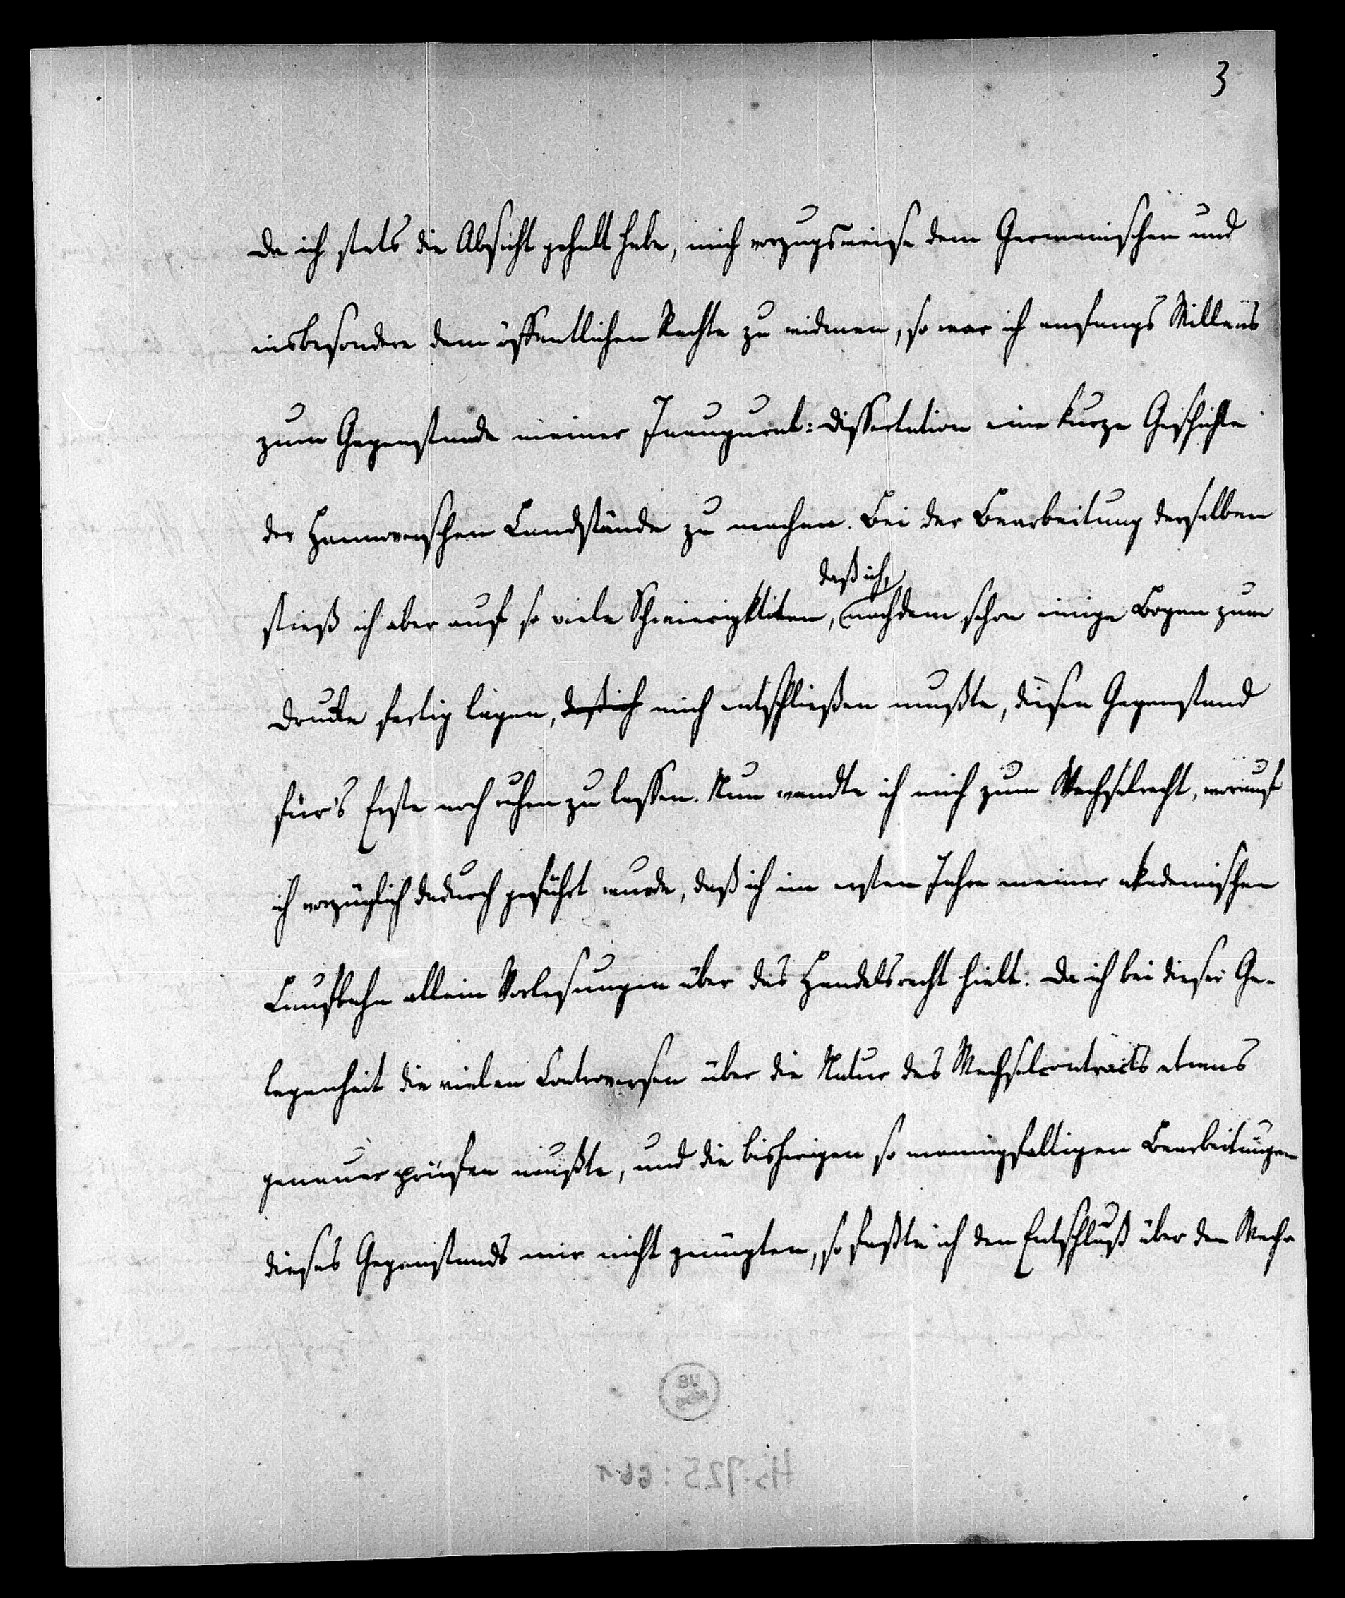 3
Da ich stets die Absicht gehabt habe, mich vorzugsweise dem Germanischen und
insbesondere dem öffentlichen Rechte zu widmen, so war ich anfangs Willens
zum Gegenstande meiner Inaugural-Dissertation eine kurze Geschichte
der Hannoverschen Landstände zu machen. Bei der Bearbeitung derselben
daß ich,
stieß ich aber auf so viele Schwierigktiten, nachdem schon einige Bogen zum
Drucke fertig lagen, daß ich mich entschließen mußte, diesen Gegenstand
für's Erste noch ruhen zu lassen. Nun wandte ich mich zum Wechselrecht, worauf
ich vorzüglich dadurch geführt wurde, daß ich im ersten Jahre meiner akademischen
Laufbahn allein Vorlesungen über das Handelsrecht hielt. Da ich bei dieser Ge-
legenheit die vielen Controversen über die Natur des Wechselcontracts etwas
genauer prüfen mußte, und die bisherigen so mannigfaltigen Bearbeitungen
dieses Gegenstands mir nicht genügten, so faßte ich den Entschluß über den Wech-
Hs. 725:661